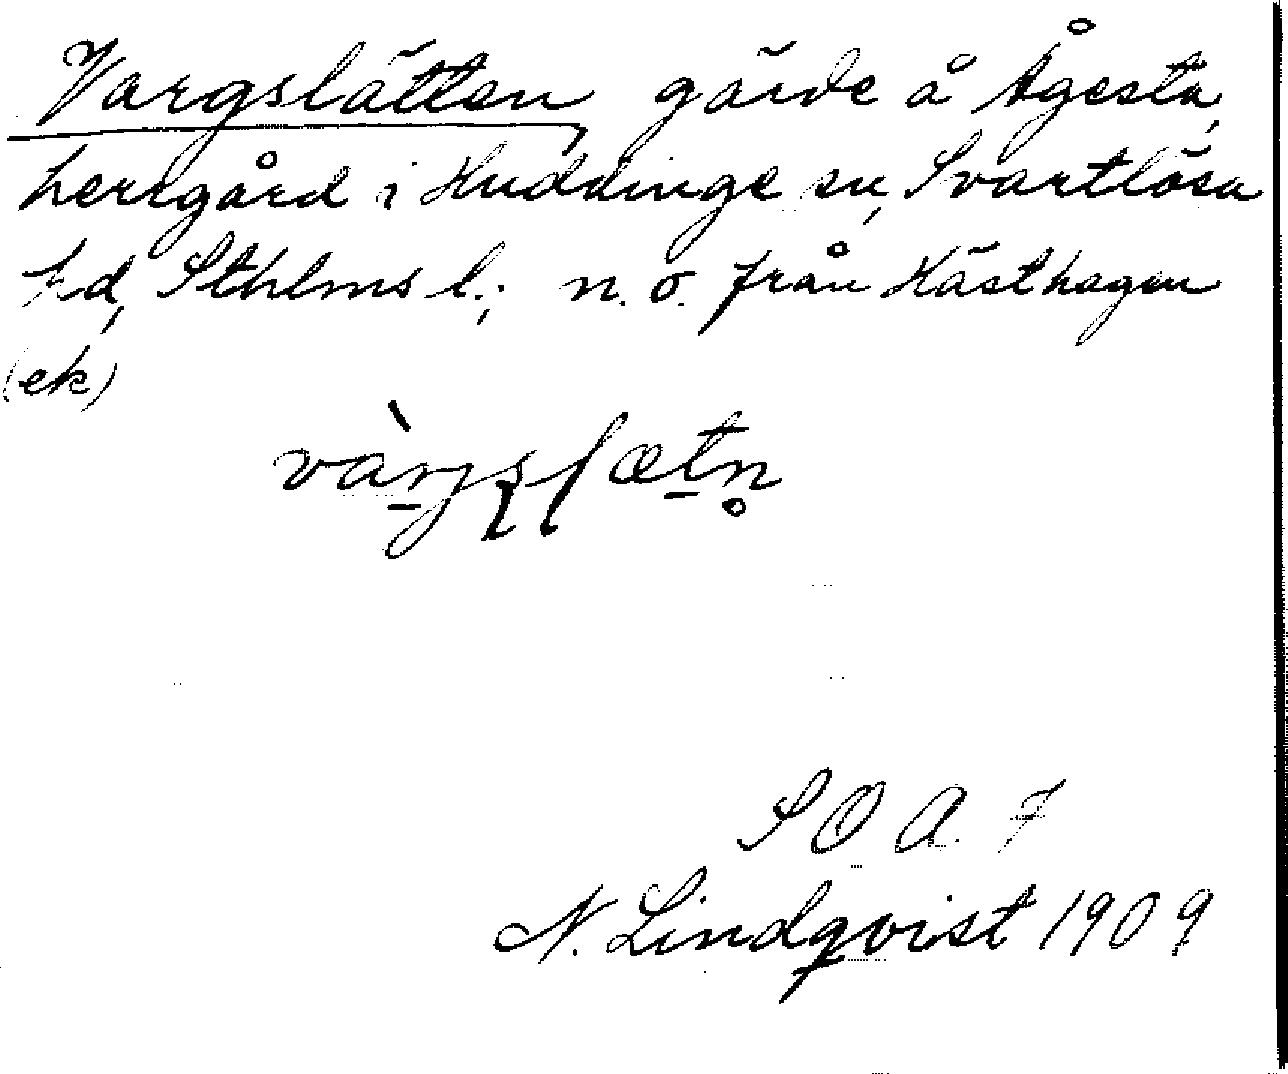 Vargslätten, gärde å Ågesta,
herrgård i Huddinge sn, Svartlösa
hd, Sthlms l.; n.ö. från Hästhagen
(ek)
SOA 7
N. Lindqvist 1909